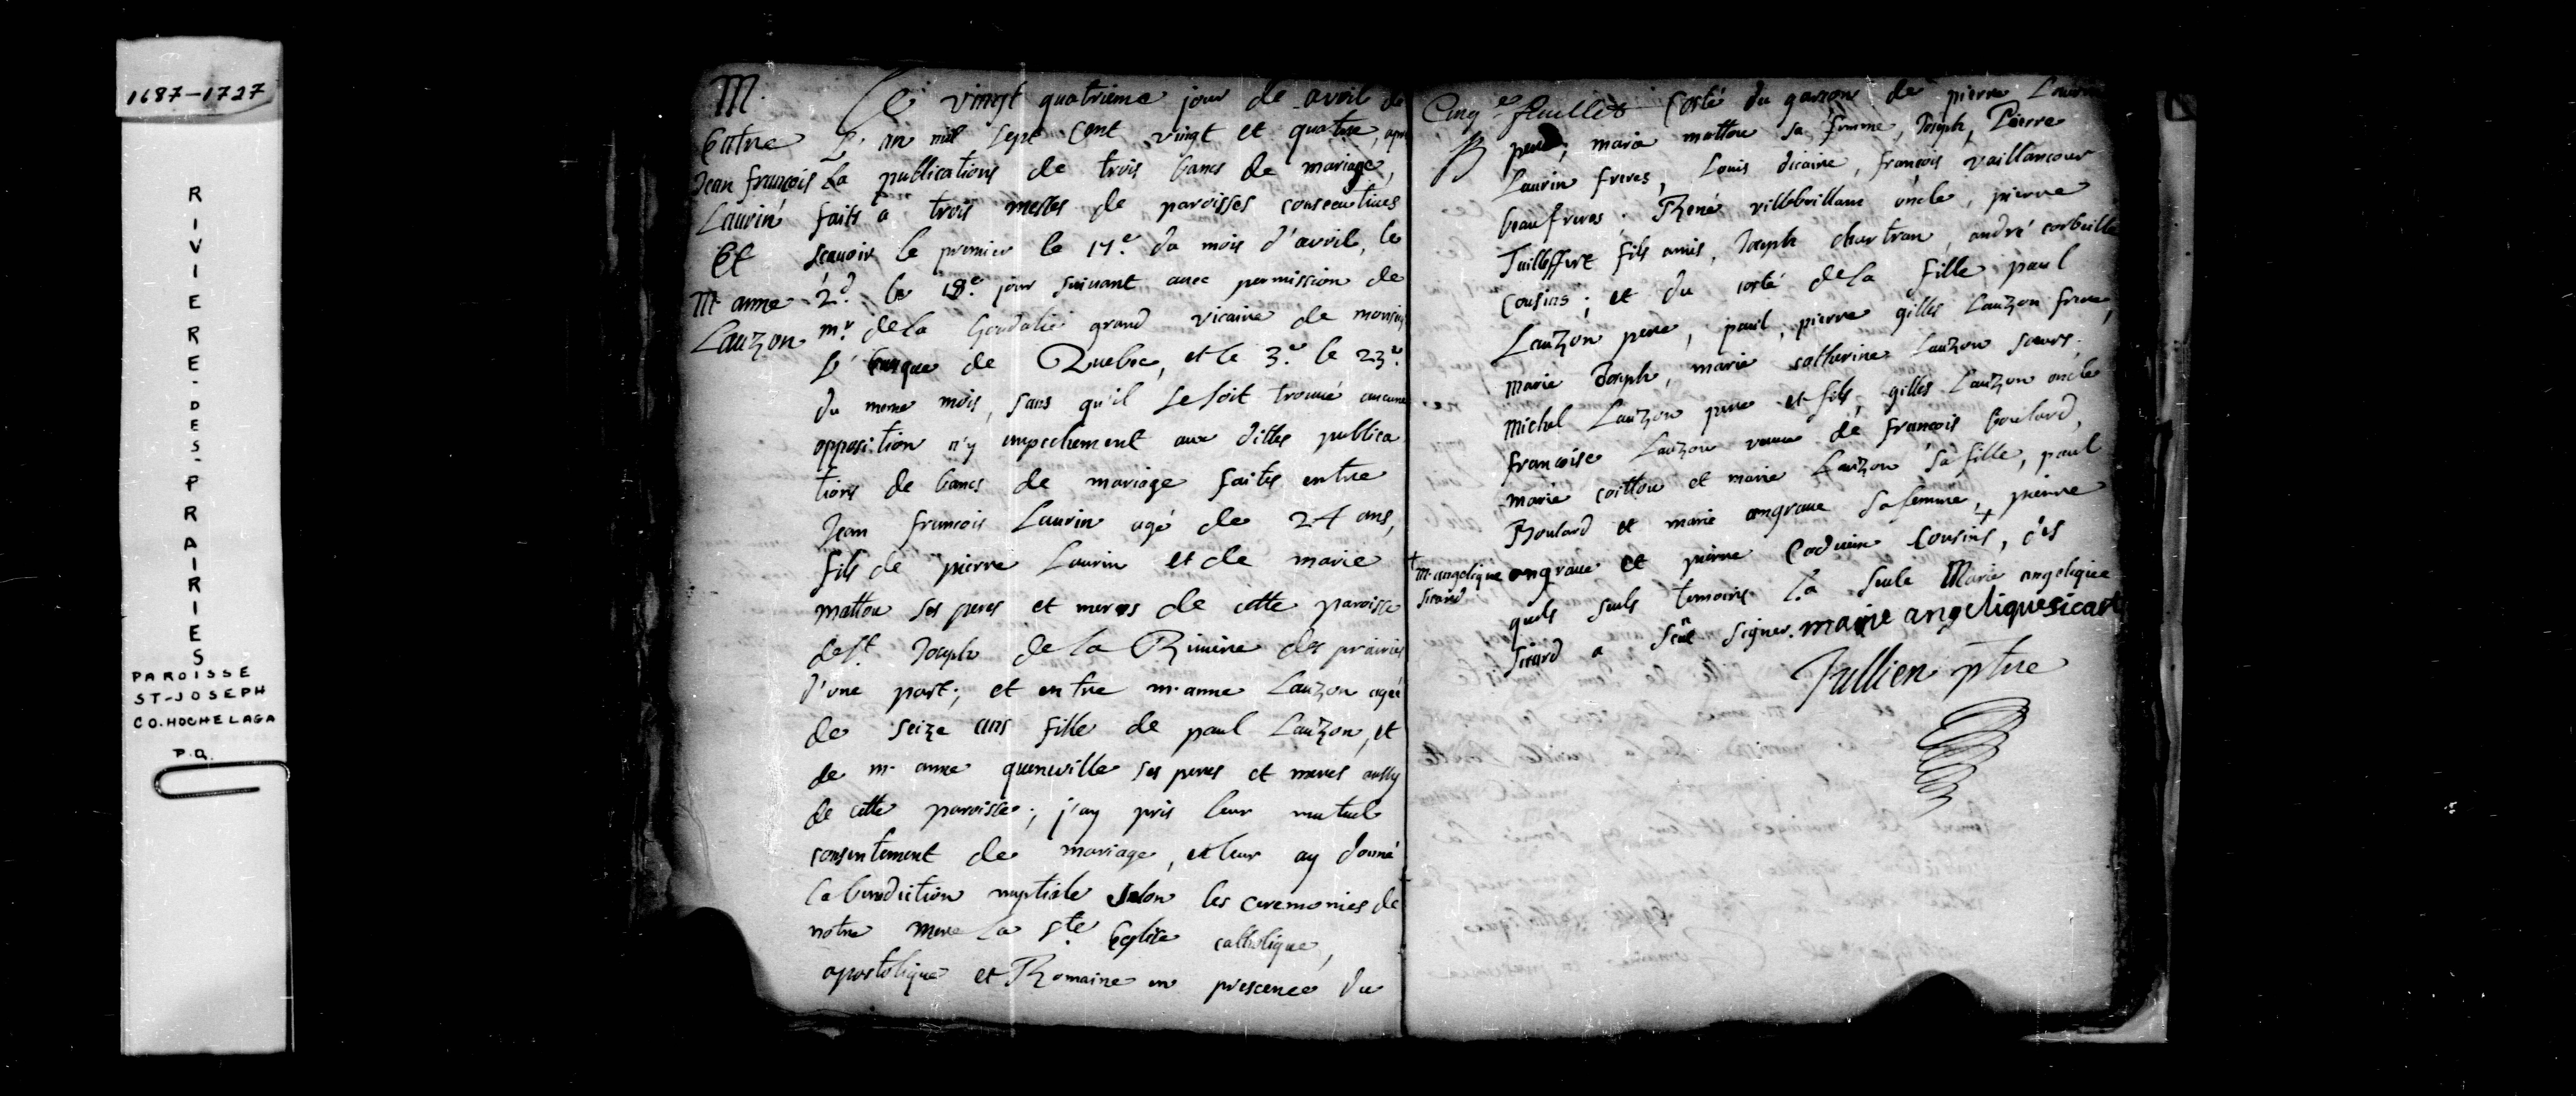 1687-1727
RIVIERE-DES-PRAIRIES
PAROISSE
ST-JOSEPH
CO. HOCHELAGA
P.Q.
M.
Entre
Jean françois
Laurin
Et
M. anne
Lauzon
Le vingt quatrieme jour de avril de
L'an mil sept cent vingt et quatre, apre
La publications de trois bancs de mariage,
faits a trois messes de paroisses consecutives
scavoir le premier le 17e. du mois d'avril, le
2d. le 18e. jour suivant avec permission de
mr. de la Goudalie grand vicaire de
L'evesque de Quebec, et le 3e. le 23e.
du meme mois, sans qu'il se soit trouvé aucune
opposition n'y empechement aux dittes publica
tions de bancs de mariage faites entre
Jean francois Laurin agé de 24 ans,
fils de pierre Laurin et de marie
mattou ses peres et meres de cette paroisse
de st. Joseph de la Riviere des prairies
d'une part; et entre m. anne Lauzon agée
de seize ans fille de paul Lauzon, et
de m. anne quenville ses peres et meres aussy
de cette paroisse; j'ay pris leur mutuel
consentement de mariage, et leur ay donné
la benediction nuptiale selon les ceremonies de
notre mere la ste Eglise catholique,
apostolique et Romaine en prescence du
Cinqe feuillet costé du garson de pierre Laurin
pere, marie mattou sa femme, Joseph, Pierre
Laurin freres, Louis dicaire, françois vaillancour
beaufreres. René villebrillant oncle, pierre
fils amis, Joseph chartran, andré corbeille
cousins; et du costé de la fille paul
Lauzon pere, paul, pierre gilles Lauzon freres,
marie Joseph, marie catherine Lauzon soeurs,
michel Lauzon pere et fils, gilles Lauzon oncle
françoise Lauzon veuve de françois boulard,
marie coitton et marie Lauzon sa fille, paul
Boulard et marie angrave sa femme, + pierre
angrave et pierre cousins, les
quels seuls temoins la seule Marie angelique
sicard a sçeu signer. marie angelique sicart
+
m. angelique
sicard
Jullien ptre